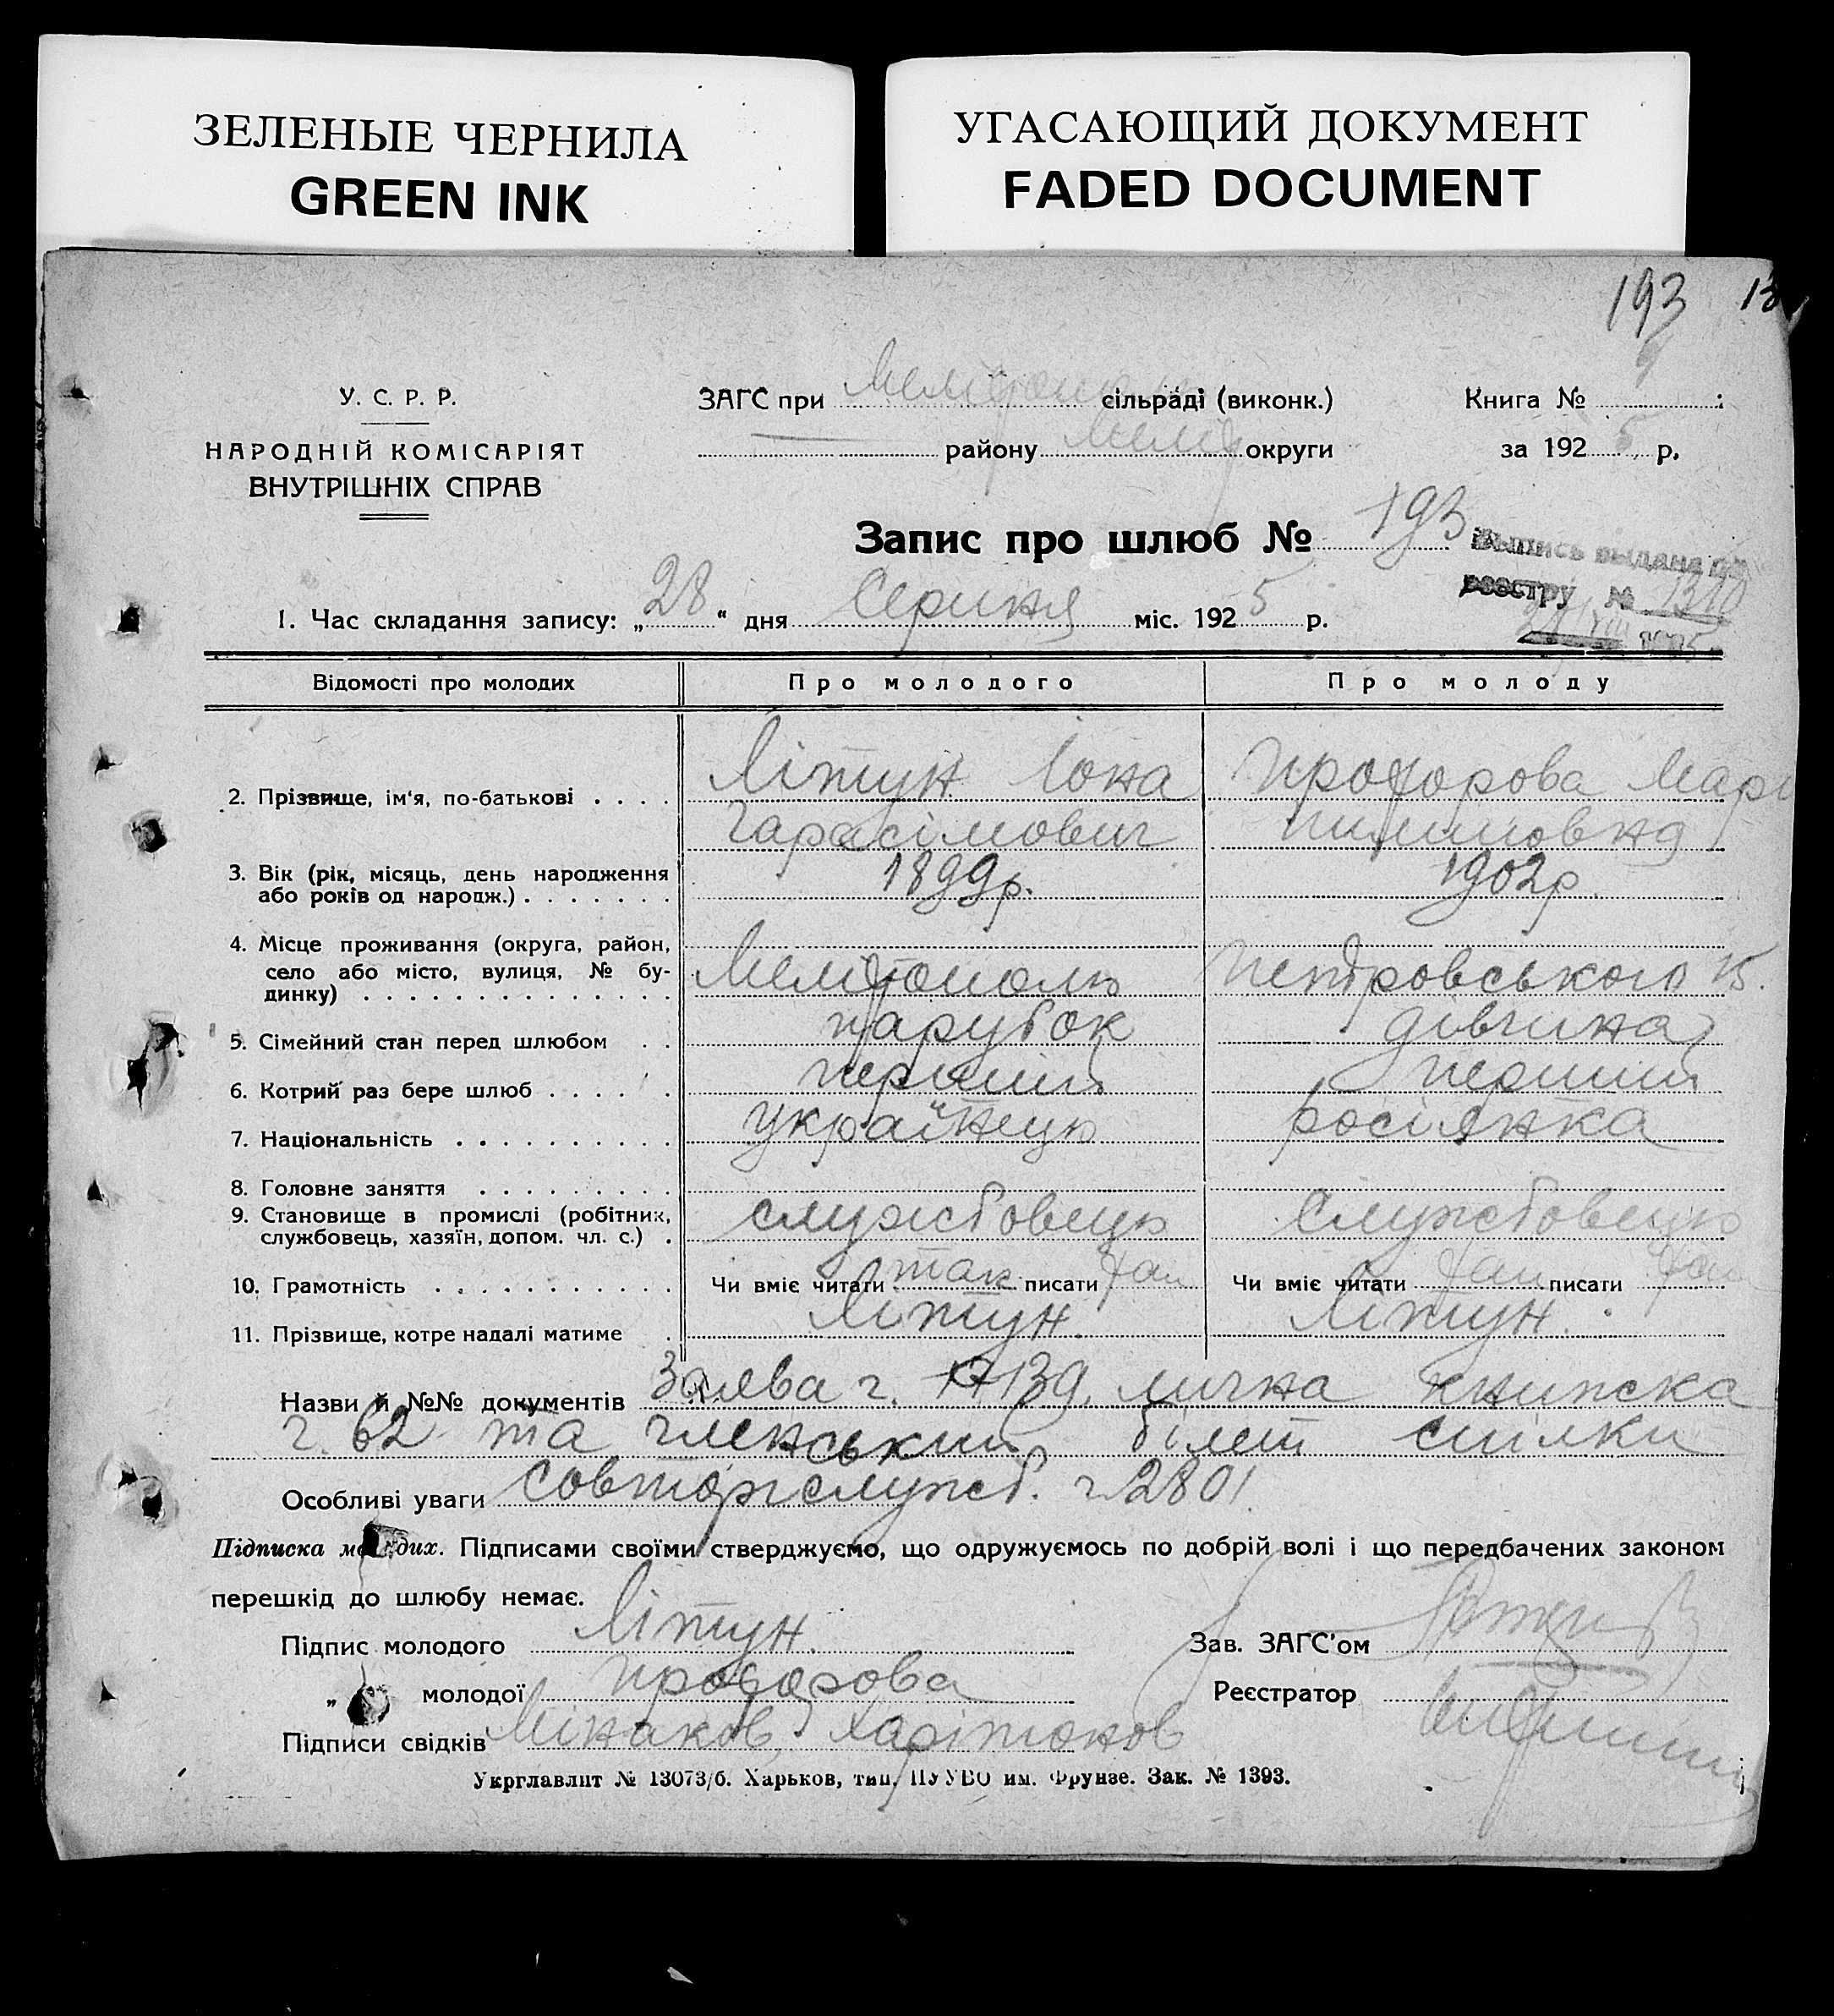 ЗЕЛЕНЫЕ ЧЕРНИЛА
GREEN INK
УГАСАЮЩИЙ ДОКУМЕНТ
FADED DOCUMENT
193
У. С. Р. Р.
НАРОДНІЙ КОМІСАРІЯТ
ВНУТРІШНІХ СПРАВ
ЗАГС при сільраді (виконк.)
району Мелит округи
Книга №
за 1925 р.
Запис про шлюб № 193
Выпись выдана по
реестру № 1310
1. Час складання запису: „28“ дня Серпня міс. 1925 р.
Відомості про молодих Про молодого Про молоду
2. Прізвище, ім'я, по-батькові Літун Іона Прохорова Марі
Гарасімович
3. Вік (рік, місяць, день народження
або років од народж.) 1899р. 1902р.
4. Місце проживання (округа, район,
село або місто, вулиця, № бу-
динку) Мелітополь Петровського 15.
5. Сімейний стан перед шлюбом парубок дівчина
6. Котрий раз бере шлюб перший перший
7. Національність українець росіянка
8. Головне заняття
9. Становище в промислі (робітник,
службовець, хазяїн, допом. чл. с.) службовець службовець
10. Грамотність Чи вміє читати так писати так Чи вміє читати так писати так
11. Прізвище, котре надалі матиме Літун. Літун.
Назви й №№ документів Заява ч. 139, лична книжка
ч. 62 та членський білет спілки
Особливі уваги Совторгслужб. ч 2801.
Підписка молодих. Підписами своїми стверджуємо, що одружуємось по добрій волі і що передбачених законом
перешкід до шлюбу немає.
Підпис молодого Літун. Зав. ЗАГС'ом
„ молодої Прохорова Реєстратор
Підписи свідків Мінаков, Харітонов
Укрглавліт № 13073/б. Харьков, тип. ПУУВО им. Фрунзе. Зак. № 1393.